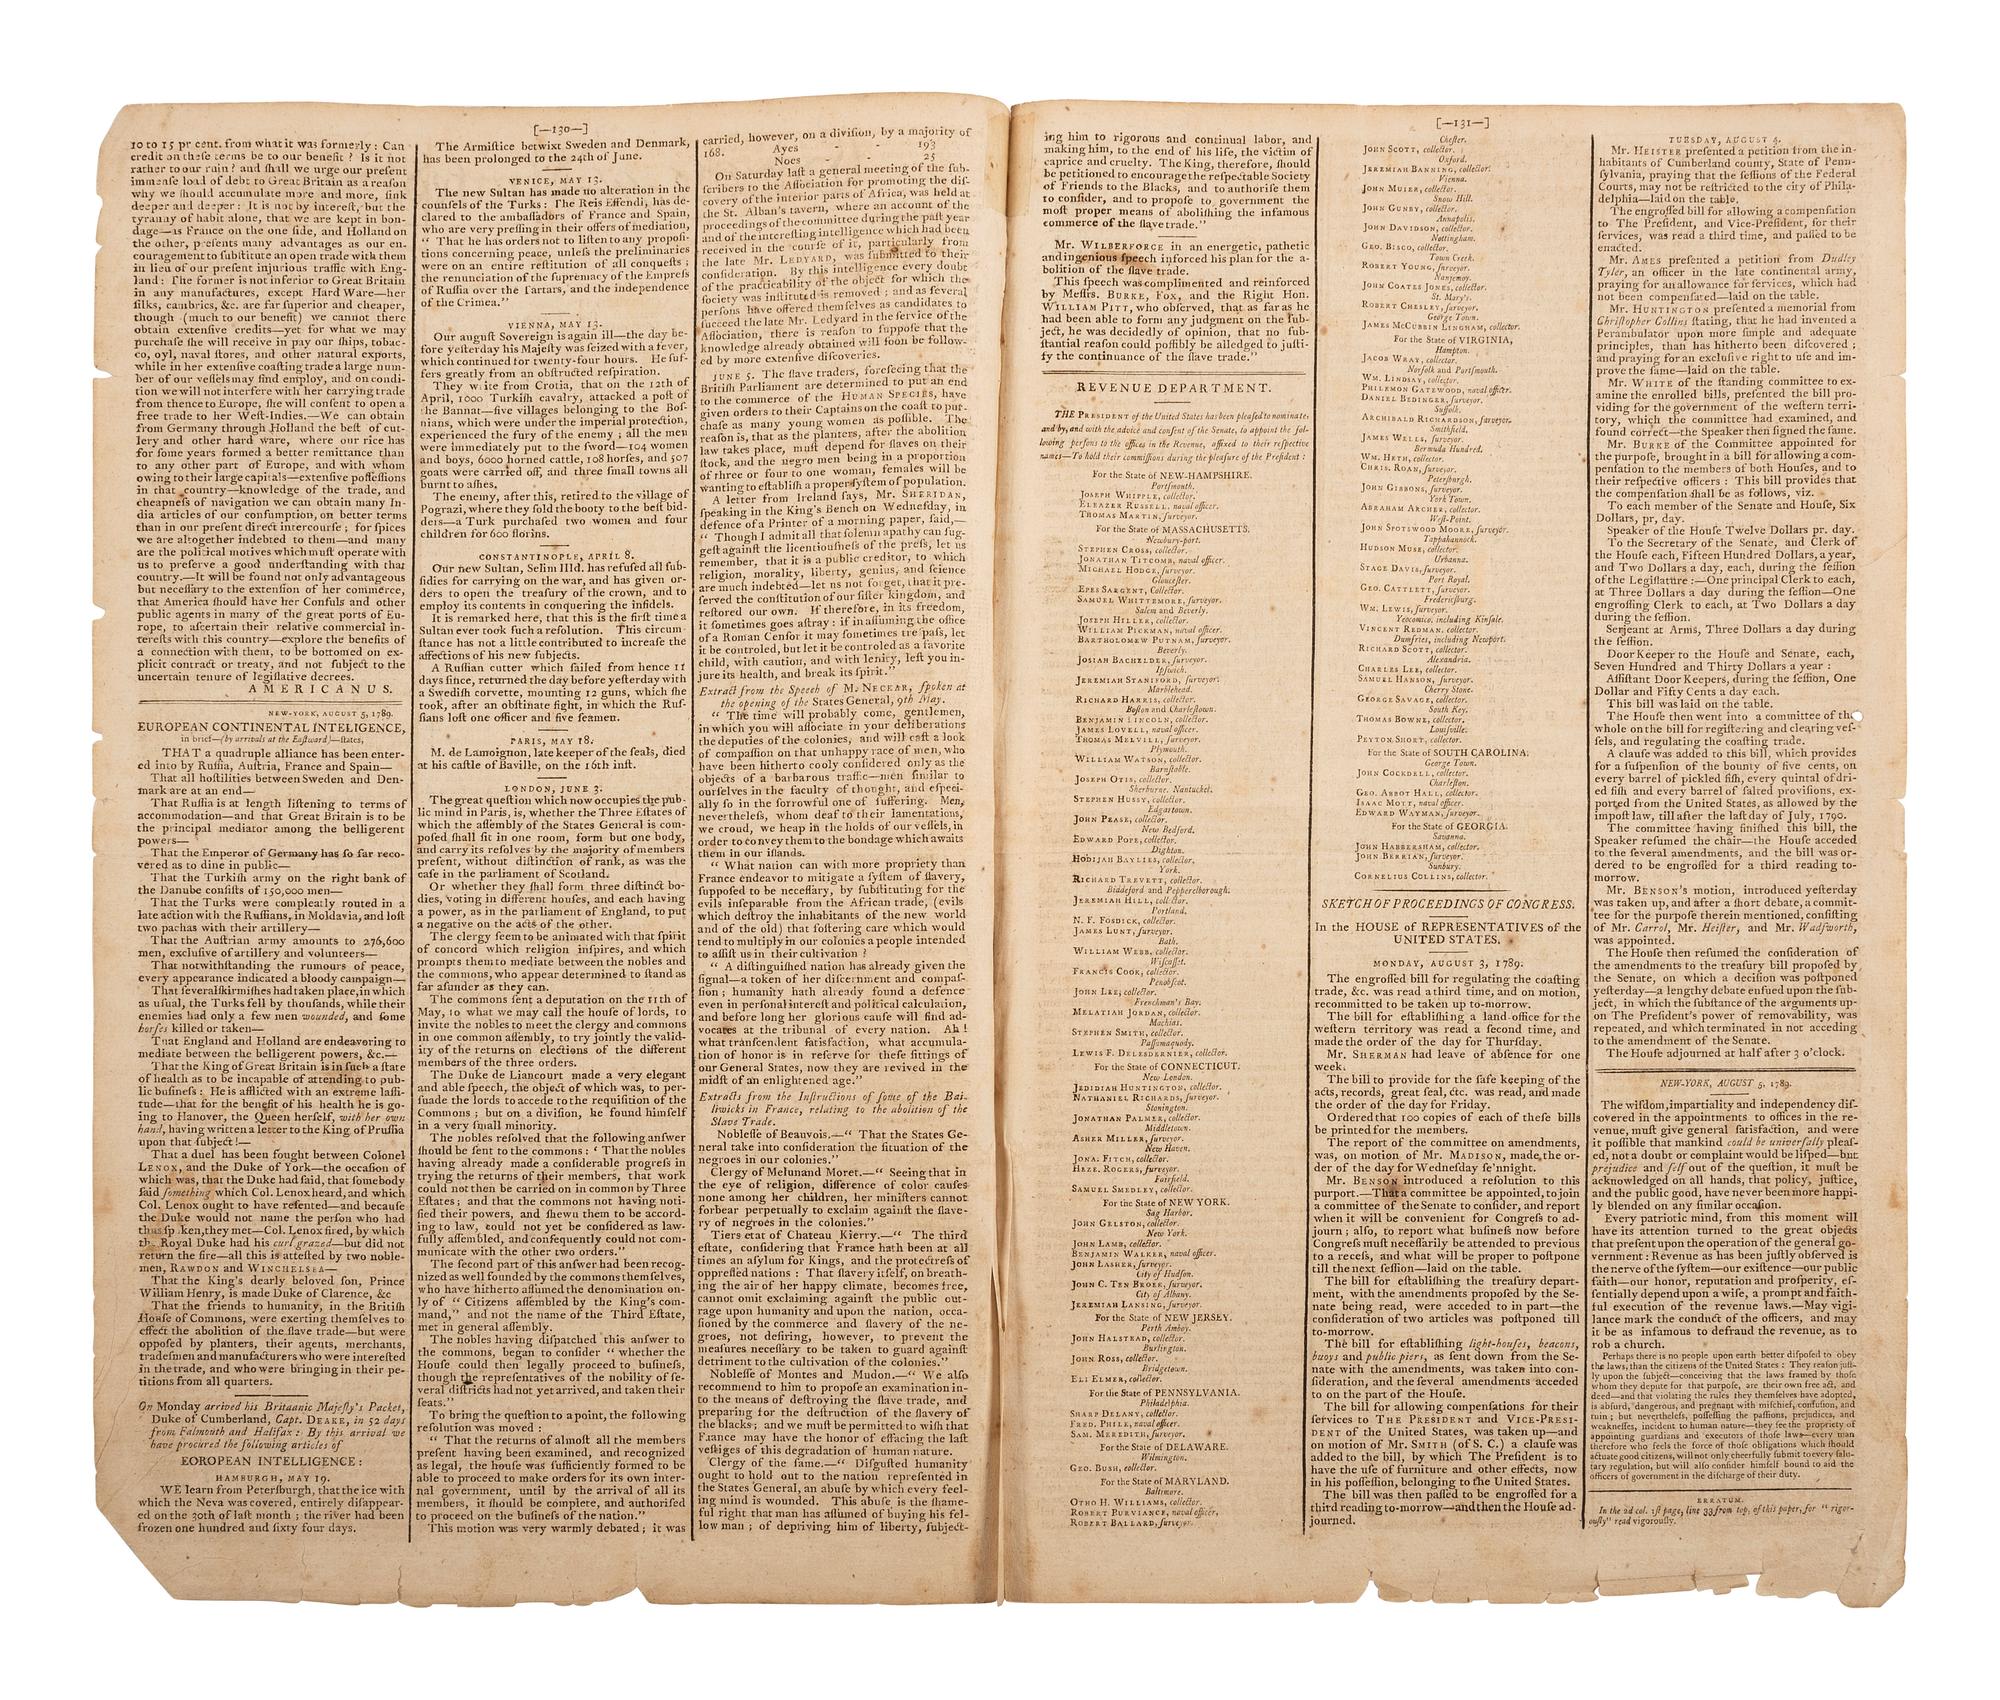 [—130—]
10 to 15 pr cent. from what it was formerly : Can
credit on theſe terms be to our benefit ? Is it not
rather to our ruin ? and ſhall we urge our preſent
immenſe load of debt to Great Britain as a reaſon
why we ſhould accumulate more and more, ſink
deeper and deeper : It is not by intereſt, but the
tyranny of habit alone, that we are kept in bon-
dage—as France on the one ſide, and Holland on
the other, preſents many advantages as our en-
couragement to ſubſtitute an open trade with them
in lieu of our preſent injurious traffic with Eng-
land : The former is not inferior to Great Britain
in any manufactures, except Hard Ware—her
ſilks, cambrics, &c. are far ſuperior and cheaper,
though (much to our benefit) we cannot there
obtain extenſive credits—yet for what we may
purchaſe ſhe will receive in pay our ſhips, tobac-
co, oyl, naval ſtores, and other natural exports,
while in her extenſive coaſting trade a large num-
ber of our veſſels may find employ, and on condi-
tion we will not interfere with her carrying trade
from thence to Europe, ſhe will conſent to open a
free trade to her Weſt-Indies.—We can obtain
from Germany through Holland the beſt of cut-
lery and other hard ware, where our rice has
for ſome years formed a better remittance than
to any other part of Europe, and with whom
owing to their large capitals—extenſive poſſeſſions
in that country—knowledge of the trade, and
cheapneſs of navigation we can obtain many In-
dia articles of our conſumption, on better terms
than in our preſent direct intercourſe ; for ſpices
we are altogether indebted to them—and many
are the political motives which muſt operate with
us to preſerve a good underſtanding with that
country.—It will be found not only advantageous
but neceſſary to the extenſion of her commerce,
that America ſhould have her Conſuls and other
public agents in many of the great ports of Eu-
rope, to aſcertain their relative commercial in-
tereſts with this country—explore the benefits of
a connection with them, to be bottomed on ex-
plicit contract or treaty, and not ſubject to the
uncertain tenure of legiſlative decrees.
AMERICANUS.
NEW-YORK, AUGUST 5, 1789.
EUROPEAN CONTINENTAL INTELLIGENCE,
in brief—(by arrivals at the Eaſtward)—ſtates,
THAT a quadruple alliance has been enter-
ed into by Ruſſia, Auſtria, France and Spain—
That all hoſtilities between Sweden and Den-
mark are at an end—
That Ruſſia is at length liſtening to terms of
accommodation—and that Great Britain is to be
the principal mediator among the belligerent
powers—
That the Emperor of Germany has ſo far reco-
vered as to dine in public—
That the Turkiſh army on the right bank of
the Danube conſiſts of 150,000 men—
That the Turks were compleatly routed in a
late action with the Ruſſians, in Moldavia, and loſt
two pachas with their artillery—
That the Auſtrian army amounts to 276,600
men, excluſive of artillery and volunteers—
That notwithſtanding the rumours of peace,
every appearance indicated a bloody campaign—
That ſeveral ſkirmiſhes had taken place, in which
as uſual, the Turks fell by thouſands, while their
enemies had only a few men wounded, and ſome
horſes killed or taken—
That England and Holland are endeavoring to
mediate between the belligerent powers, &c.—
That the King of Great Britain is in ſuch a ſtate
of health as to be incapable of attending to pub-
lic buſineſs : He is afflicted with an extreme laſſi-
tude—that for the benefit of his health he is go-
ing to Hanover, the Queen herſelf, with her own
hand, having written a letter to the King of Pruſſia
upon that ſubject !—
That a duel has been fought between Colonel
LENOX, and the Duke of York—the occaſion of
which was, that the Duke had ſaid, that ſomebody
ſaid ſomething which Col. Lenox heard, and which
Col. Lenox ought to have reſented—and becauſe
the Duke would not name the perſon who had
thus ſpoken, they met—Col. Lenox fired, by which
the Royal Duke had his curl grazed—but did not
return the fire—all this is atteſted by two noble-
men, RAWDON and WINCHELSEA—
That the King's dearly beloved ſon, Prince
William Henry, is made Duke of Clarence, &c
That the friends to humanity, in the Britiſh
Houſe of Commons, were exerting themſelves to
effect the abolition of the ſlave trade—but were
oppoſed by planters, their agents, merchants,
tradeſmen and manufacturers who were intereſted
in the trade, and who were bringing in their pe-
titions from all quarters.
On Monday arrived his Britannic Majeſty's Packet,
Duke of Cumberland, Capt. DEAKE, in 52 days
from Falmouth and Halifax : By this arrival we
have procured the following articles of
EOROPEAN INTELLIGENCE :
HAMBURGH, MAY 19.
WE learn from Peterſburgh, that the ice with
which the Neva was covered, entirely diſappear-
ed on the 30th of laſt month ; the river had been
frozen one hundred and ſixty four days.
The Armiſtice betwixt Sweden and Denmark,
has been prolonged to the 24th of June.
VENICE, MAY 13.
The new Sultan has made no alteration in the
counſels of the Turks : The Reis Effendi, has de-
clared to the ambaſſadors of France and Spain,
who are very preſſing in their offers of mediation,
“ That he has orders not to liſten to any propoſi-
tions concerning peace, unleſs the preliminaries
were on an entire reſtitution of all conqueſts ;
the renunciation of the ſupremacy of the Empreſs
of Ruſſia over the Tartars, and the independence
of the Crimea.”
VIENNA, MAY 13.
Our auguſt Sovereign is again ill—the day be-
fore yeſterday his Majeſty was ſeized with a fever,
which continued for twenty-four hours. He ſuf-
fers greatly from an obſtructed reſpiration.
They write from Crotia, that on the 12th of
April, 1000 Turkiſh cavalry, attacked a poſt of
the Bannat—five villages belonging to the Boſ-
nians, which were under the imperial protection,
experienced the fury of the enemy ; all the men
were immediately put to the ſword—104 women
and boys, 6000 horned cattle, 108 horſes, and 507
goats were carried off, and three ſmall towns all
burnt to aſhes.
The enemy, after this, retired to the village of
Pograzi, where they ſold the booty to the beſt bid-
ders—a Turk purchaſed two women and four
children for 600 florins.
CONSTANTINOPLE, APRIL 8.
Our new Sultan, Selim IIId. has refuſed all ſub-
ſidies for carrying on the war, and has given or-
ders to open the treaſury of the crown, and to
employ its contents in conquering the infidels.
It is remarked here, that this is the firſt time a
Sultan ever took ſuch a reſolution. This circum-
ſtance has not a little contributed to increaſe the
affections of his new ſubjects.
A Ruſſian cutter which ſailed from hence 11
days ſince, returned the day before yeſterday with
a Swediſh corvette, mounting 12 guns, which ſhe
took, after an obſtinate fight, in which the Ruſ-
ſians loſt one officer and five ſeamen.
PARIS, MAY 18.
M. de Lamoignon, late keeper of the ſeals, died
at his caſtle of Baville, on the 16th inſt.
LONDON, JUNE 3.
The great queſtion which now occupies the pub-
lic mind in Paris, is, whether the Three Eſtates of
which the aſſembly of the States General is com-
poſed ſhall ſit in one room, form but one body,
and carry its reſolves by the majority of members
preſent, without diſtinction of rank, as was the
caſe in the parliament of Scotland.
Or whether they ſhall form three diſtinct bo-
dies, voting in different houſes, and each having
a power, as in the parliament of England, to put
a negative on the acts of the other.
The clergy ſeem to be animated with that ſpirit
of concord which religion inſpires, and which
prompts them to mediate between the nobles and
the commons, who appear determined to ſtand as
far aſunder as they can.
The commons ſent a deputation on the 11th of
May, to what we may call the houſe of lords, to
invite the nobles to meet the clergy and commons
in one common aſſembly, to try jointly the valid-
ity of the returns on elections of the different
members of the three orders.
The Duke de Liancourt made a very elegant
and able ſpeech, the object of which was, to per-
ſuade the lords to accede to the requiſition of the
Commons ; but on a diviſion, he found himſelf
in a very ſmall minority.
The nobles reſolved that the following anſwer
ſhould be ſent to the commons : ‘ That the nobles
having already made a conſiderable progreſs in
trying the returns of their members, that work
could not then be carried on in common by Three
Eſtates ; and that the commons not having noti-
fied their powers, and ſhewn them to be accord-
ing to law, could not yet be conſidered as law-
fully aſſembled, and conſequently could not com-
municate with the other two orders.”
The ſecond part of this anſwer had been recog-
nized as well founded by the commons themſelves,
who have hitherto aſſumed the denomination on-
ly of “ Citizens aſſembled by the King's com-
mand,” and not the name of the Third Eſtate,
met in general aſſembly.
The nobles having diſpatched this anſwer to
the commons, began to conſider “ whether the
Houſe could then legally proceed to buſineſs,
though the repreſentatives of the nobility of ſe-
veral diſtricts had not yet arrived, and taken their
ſeats.”
To bring the queſtion to a point, the following
reſolution was moved :
“ That the returns of almoſt all the members
preſent having been examined, and recognized
as legal, the houſe was ſufficiently formed to be
able to proceed to make orders for its own inter-
nal government, until by the arrival of all its
members, it ſhould be complete, and authoriſed
to proceed on the buſineſs of the nation.”
This motion was very warmly debated ; it was
carried, however, on a diviſion, by a majority of
168. Ayes - - 193
Noes - - 25
On Saturday laſt a general meeting of the ſub-
ſcribers to the Aſſociation for promoting the diſ-
covery of the interior parts of Africa, was held at
the St. Alban's tavern, where an account of the
proceedings of the committee during the paſt year
and of the intereſting intelligence which had been
received in the courſe of it, particularly from
the late Mr. LEDYARD, was ſubmitted to their
conſideration. By this intelligence every doubt
of the practicability of the object for which the
ſociety was inſtituted is removed ; and as ſeveral
perſons have offered themſelves as candidates to
ſucceed the late Mr. Ledyard in the ſervice of the
Aſſociation, there is reaſon to ſuppoſe that the
knowledge already obtained will ſoon be follow-
ed by more extenſive diſcoveries.
JUNE 5. The ſlave traders, foreſeeing that the
Britiſh Parliament are determined to put an end
to the commerce of the HUMAN SPECIES, have
given orders to their Captains on the coaſt to pur-
chaſe as many young women as poſſible. The
reaſon is, that as the planters, after the abolition
law takes place, muſt depend for ſlaves on their
ſtock, and the negro men being in a proportion
of three or four to one woman, females will be
wanting to eſtabliſh a proper ſyſtem of population.
A letter from Ireland ſays, Mr. SHERIDAN,
ſpeaking in the King's Bench on Wedneſday, in
defence of a Printer of a morning paper, ſaid,—
“ Though I admit all that ſolemn apathy can ſug-
geſt againſt the licentiouſneſs of the preſs, let us
remember, that it is a public creditor, to which
religion, morality, liberty, genius, and ſcience
are much indebted—let us not forget, that it pre-
ſerved the conſtitution of our ſiſter kingdom, and
reſtored our own. If therefore, in its freedom,
it ſometimes goes aſtray : if in aſſuming the office
of a Roman Cenſor it may ſometimes treſpaſs, let
it be controled, but let it be controled as a favorite
child, with caution, and with lenity, leſt you in-
jure its health, and break its ſpirit.”
Extract from the Speech of M. NECKAR, ſpoken at
the opening of the States General, 9th May.
“ The time will probably come, gentlemen,
in which you will aſſociate in your deliberations
the deputies of the colonies, and will caſt a look
of compaſſion on that unhappy race of men, who
have been hitherto cooly conſidered only as the
objects of a barbarous traffic—men ſimilar to
ourſelves in the faculty of thought, and eſpeci-
ally ſo in the ſorrowful one of ſuffering. Men,
nevertheleſs, whom deaf to their lamentations,
we croud, we heap in the holds of our veſſels, in
order to convey them to the bondage which awaits
them in our iſlands.
“ What nation can with more propriety than
France endeavor to mitigate a ſyſtem of ſlavery,
ſuppoſed to be neceſſary, by ſubſtituting for the
evils inſeparable from the African trade, (evils
which deſtroy the inhabitants of the new world
and of the old) that foſtering care which would
tend to multiply in our colonies a people intended
to aſſiſt us in their cultivation ?
“ A diſtinguiſhed nation has already given the
ſignal—a token of her diſcernment and compaſ-
ſion ; humanity hath already found a defence
even in perſonal intereſt and political calculation,
and before long her glorious cauſe will find ad-
vocates at the tribunal of every nation. Ah !
what tranſcendent ſatisfaction, what accumula-
tion of honor is in reſerve for theſe ſittings of
our General States, now they are revived in the
midſt of an enlightened age.”
Extracts from the Inſtructions of ſome of the Bai-
liwicks in France, relating to the abolition of the
Slave Trade.
Nobleſſe of Beauvois.—“ That the States Ge-
neral take into conſideration the ſituation of the
negroes in our colonies.”
Clergy of Melun and Moret.—“ Seeing that in
the eye of religion, difference of color cauſes
none among her children, her miniſters cannot
forbear perpetually to exclaim againſt the ſlave-
ry of negroes in the colonies.”
Tiers etat of Chateau Kierry.—“ The third
eſtate, conſidering that France hath been at all
times an aſylum for Kings, and the protectreſs of
oppreſſed nations : That ſlavery itſelf, on breath-
ing the air of her happy climate, becomes free,
cannot omit exclaiming againſt the public out-
rage upon humanity and upon the nation, occa-
ſioned by the commerce and ſlavery of the ne-
groes, not deſiring, however, to prevent the
meaſures neceſſary to be taken to guard againſt
detriment to the cultivation of the colonies.”
Nobleſſe of Montes and Mudon.—“ We alſo
recommend to him to propoſe an examination in-
to the means of deſtroying the ſlave trade, and
preparing for the deſtruction of the ſlavery of
the blacks ; and we muſt be permitted to wiſh that
France may have the honor of effacing the laſt
veſtiges of this degradation of human nature.
Clergy of the ſame.—“ Diſguſted humanity
ought to hold out to the nation repreſented in
the States General, an abuſe by which every feel-
ing mind is wounded. This abuſe is the ſhame-
ful right that man has aſſumed of buying his fel-
low man ; of depriving him of liberty, ſubject-
[—131—]
ing him to rigorous and continual labor, and
making him, to the end of his life, the victim of
caprice and cruelty. The King, therefore, ſhould
be petitioned to encourage the reſpectable Society
of Friends to the Blacks, and to authoriſe them
to conſider, and to propoſe to government the
moſt proper means of aboliſhing the infamous
commerce of the ſlave trade.”
Mr. WILBERFORCE in an energetic, pathetic
and ingenious ſpeech inforced his plan for the a-
bolition of the ſlave trade.
This ſpeech was complimented and reinforced
by Meſſrs. BURKE, FOX, and the Right Hon.
WILLIAM PITT, who obſerved, that as far as he
had been able to form any judgment on the ſub-
ject, he was decidedly of opinion, that no ſub-
ſtantial reaſon could poſſibly be alledged to juſti-
fy the continuance of the ſlave trade.”
REVENUE DEPARTMENT.
THE PRESIDENT of the United States has been pleaſed to nominate,
and by, and with the advice and conſent of the Senate, to appoint the fol-
lowing perſons to the offices in the Revenue, affixed to their reſpective
names—To hold their commiſſions during the pleaſure of the Preſident :
For the State of NEW-HAMPSHIRE.
Portſmouth.
JOSEPH WHIPPLE, collector.
ELEAZER RUSSELL, naval officer.
THOMAS MARTIN, ſurveyor.
For the State of MASSACHUSETTS.
Newbury-port.
STEPHEN CROSS, collector.
JONATHAN TITCOMB, naval officer.
MICHAEL HODGE, ſurveyor.
Glouceſter.
EPES SARGENT, Collector.
SAMUEL WHITTEMORE, ſurveyor.
Salem and Beverly.
JOSEPH HILLER, collector.
WILLIAM PICKMAN, naval officer.
BARTHOLOMEW PUTNAM, ſurveyor.
Beverly.
JOSIAH BACHELDER, ſurveyor.
Ipſwich.
JEREMIAH STANIFORD, ſurveyor.
Marblehead.
RICHARD HARRIS, collector.
Boſton and Charleſtown.
BENJAMIN LINCOLN, collector.
JAMES LOVELL, naval officer.
THOMAS MELVILL, ſurveyor.
Plymouth.
WILLIAM WATSON, collector.
Barnſtable.
JOSEPH OTIS, collector.
Sherburne. Nantucket.
STEPHEN HUSSY, collector.
Edgartown.
JOHN PEASE, collector.
New Bedford.
EDWARD POPE, collector.
Dighton.
HODIJAH BAYLIES, collector.
York.
RICHARD TREVETT, collector.
Biddeford and Pepperelborough.
JEREMIAH HILL, collector.
Portland.
N. F. FOSDICK, collector.
JAMES LUNT, ſurveyor.
Bath.
WILLIAM WEBB, collector.
Wiſcaſſet.
FRANCIS COOK, collector.
Penobſcot.
JOHN LEE, collector.
Frenchman's Bay.
MELATIAH JORDAN, collector.
Machias.
STEPHEN SMITH, collector.
Paſſamaquody.
LEWIS F. DELESDERNIER, collector.
For the State of CONNECTICUT.
New London.
JEDIDIAH HUNTINGTON, collector.
NATHANIEL RICHARDS, ſurveyor.
Stonington.
JONATHAN PALMER, ſurveyor.
Middletown.
ASHER MILLER, ſurveyor.
New Haven.
JONA. FITCH, collector.
HEZE. ROGERS, ſurveyor.
Fairfield.
SAMUEL SMEDLEY, collector.
For the State of NEW YORK.
Sag Harbor.
JOHN GELSTON, collector.
New York.
JOHN LAMB, collector.
BENJAMIN WALKER, naval officer.
JOHN LASHER, ſurveyor.
City of Hudſon.
JOHN C. TEN BROEK, ſurveyor.
City of Albany.
JEREMIAH LANSING, ſurveyor.
For the State of NEW JERSEY.
Perth Amboy.
JOHN HALSTEAD, collector.
Burlington.
JOHN ROSS, collector.
Bridgetown.
ELI ELMER, collector.
For the State of PENNSYLVANIA.
Philadelphia.
SHARP DELANY, collector.
FRED. PHILE, naval officer.
SAM. MEREDITH, ſurveyor.
For the State of DELAWARE.
Wilmington.
GEO. BUSH, collector.
For the State of MARYLAND.
Baltimore.
OTHO H. WILLIAMS, collector.
ROBERT PURVIANCE, naval officer.
ROBERT BALLARD, ſurveyor.
Cheſter.
JOHN SCOTT, collector.
Oxford.
JEREMIAH BANNING, collector.
Vienna.
JOHN MUIER, collector.
Snow Hill.
JOHN GUNBY, collector.
Annapolis.
JOHN DAVIDSON, collector.
Nottingham.
GEO. BISCO, collector.
Town Creek.
ROBERT YOUNG, ſurveyor.
Nanjemoy.
JOHN COATES JONES, collector.
St. Mary's.
ROBERT CHESLEY, ſurveyor.
George Town.
JAMES MCCUBBIN LINGHAM, collector.
For the State of VIRGINIA,
Hampton.
JACOB WRAY, collector.
Norfolk and Portſmouth.
WM. LINDSAY, collector.
PHILEMON GATEWOOD, naval officer.
DANIEL BEDINGER, ſurveyor.
Suffolk.
ARCHIBALD RICHARDSON, ſurveyor.
Smithfield.
JAMES WELLS, ſurveyor.
Bermuda Hundred.
WM. HETH, collector.
CHRIS. ROAN, ſurveyor.
Peterſburgh.
JOHN GIBBONS, ſurveyor.
York Town.
ABRAHAM ARCHER, collector.
Weſt-Point.
JOHN SPOTSWOOD MOORE, ſurveyor.
Tappahannock.
HUDSON MUSE, collector.
Urbanna.
STAGE DAVIS, ſurveyor.
Port Royal.
GEO. CATTLETT, ſurveyor.
Frederickſburg.
WM. LEWIS, ſurveyor.
Yeocomico, including Kinſale.
VINCENT REDMAN, collector.
Dumfries, including Newport.
RICHARD SCOTT, collector.
Alexandria.
CHARLES LEE, collector.
SAMUEL HANSON, ſurveyor.
Cherry Stone.
GEORGE SAVAGE, collector.
South Key.
THOMAS BOWNE, collector.
Louiſville.
PEYTON SHORT, collector.
For the State of SOUTH CAROLINA.
George Town.
JOHN COCKDELL, collector.
Charleſton.
GEO. ABBOT HALL, collector.
ISAAC MOTT, naval officer.
EDWARD WAYMAN, ſurveyor.
For the State of GEORGIA.
Savanna.
JOHN HABBERSHAM, collector.
JOHN BERRIAN, ſurveyor.
Sunbury.
CORNELIUS COLLINS, collector.
SKETCH OF PROCEEDINGS OF CONGRESS.
In the HOUSE of REPRESENTATIVES of the
UNITED STATES.
MONDAY, AUGUST 3, 1789.
The engroſſed bill for regulating the coaſting
trade, &c. was read a third time, and on motion,
recommitted to be taken up to-morrow.
The bill for eſtabliſhing a land office for the
weſtern territory was read a ſecond time, and
made the order of the day for Thurſday.
Mr. SHERMAN had leave of abſence for one
week.
The bill to provide for the ſafe keeping of the
acts, records, great ſeal, &c. was read, and made
the order of the day for Friday.
Ordered that 100 copies of each of theſe bills
be printed for the members.
The report of the committee on amendments,
was, on motion of Mr. MADISON, made the or-
der of the day for Wedneſday ſe'nnight.
Mr. BENSON introduced a reſolution to this
purport.—That a committee be appointed, to join
a committee of the Senate to conſider, and report
when it will be convenient for Congreſs to ad-
journ ; alſo, to report what buſineſs now before
Congreſs muſt neceſſarily be attended to previous
to a receſs, and what will be proper to poſtpone
till the next ſeſſion—laid on the table.
The bill for eſtabliſhing the treaſury depart-
ment, with the amendments propoſed by the Se-
nate being read, were acceded to in part—the
conſideration of two articles was poſtponed till
to-morrow.
The bill for eſtabliſhing light-houſes, beacons,
buoys and public piers, as ſent down from the Se-
nate with the amendments, was taken into con-
ſideration, and the ſeveral amendments acceded
to on the part of the Houſe.
The bill for allowing compenſations for their
ſervices to THE PRESIDENT and VICE-PRESI-
DENT of the United States, was taken up—and
on motion of Mr. SMITH (of S. C.) a clauſe was
added to the bill, by which The Preſident is to
have the uſe of furniture and other effects, now
in his poſſeſſion, belonging to the United States.
The bill was then paſſed to be engroſſed for a
third reading to-morrow—and then the Houſe ad-
journed.
TUESDAY, AUGUST 4.
Mr. HEISTER preſented a petition from the in-
habitants of Cumberland county, State of Penn-
ſylvania, praying that the ſeſſions of the Federal
Courts, may not be reſtricted to the city of Phila-
delphia—laid on the table.
The engroſſed bill for allowing a compenſation
to The Preſident, and Vice-Preſident, for their
ſervices, was read a third time, and paſſed to be
enacted.
Mr. AMES preſented a petition from Dudley
Tyler, an officer in the late continental army,
praying for an allowance for ſervices, which had
not been compenſated—laid on the table.
Mr. HUNTINGTON preſented a memorial from
Chriſtopher Collins ſtating, that he had invented a
Perambulator upon more ſimple and adequate
principles, than has hitherto been diſcovered ;
and praying for an excluſive right to uſe and im-
prove the ſame—laid on the table.
Mr. WHITE of the ſtanding committee to ex-
amine the enrolled bills, preſented the bill pro-
viding for the government of the weſtern terri-
tory, which the committee had examined, and
found correct—the Speaker then ſigned the ſame.
Mr. BURKE of the Committee appointed for
the purpoſe, brought in a bill for allowing a com-
penſation to the members of both Houſes, and to
their reſpective officers : This bill provides that
the compenſation ſhall be as follows, viz.
To each member of the Senate and Houſe, Six
Dollars, pr, day.
Speaker of the Houſe Twelve Dollars pr. day.
To the Secretary of the Senate, and Clerk of
the Houſe each, Fifteen Hundred Dollars, a year,
and Two Dollars a day, each, during the ſeſſion
of the Legiſlature :—One principal Clerk to each,
at Three Dollars a day during the ſeſſion—One
engroſſing Clerk to each, at Two Dollars a day
during the ſeſſion.
Serjeant at Arms, Three Dollars a day during
the ſeſſion.
Door Keeper to the Houſe and Senate, each,
Seven Hundred and Thirty Dollars a year :
Aſſiſtant Door Keepers, during the ſeſſion, One
Dollar and Fifty Cents a day each.
This bill was laid on the table.
The Houſe then went into a committee of the
whole on the bill for regiſtering and clearing veſ-
ſels, and regulating the coaſting trade.
A clauſe was added to this bill, which provides
for a ſuſpenſion of the bounty of five cents, on
every barrel of pickled fiſh, every quintal of dri-
ed fiſh and every barrel of ſalted proviſions, ex-
ported from the United States, as allowed by the
impoſt law, till after the laſt day of July, 1790.
The committee having finiſhed this bill, the
Speaker reſumed the chair—the Houſe acceded
to the ſeveral amendments, and the bill was or-
dered to be engroſſed for a third reading to-
morrow.
Mr. BENSON's motion, introduced yeſterday
was taken up, and after a ſhort debate, a commit-
tee for the purpoſe therein mentioned, conſiſting
of Mr. Carrol, Mr. Heiſter, and Mr. Wadſworth,
was appointed.
The Houſe then reſumed the conſideration of
the amendments to the treaſury bill propoſed by
the Senate, on which a deciſion was poſtponed
yeſterday—a lengthy debate enſued upon the ſub-
ject, in which the ſubſtance of the arguments up-
on The Preſident's power of removability, was
repeated, and which terminated in not acceding
to the amendment of the Senate.
The Houſe adjourned at half after 3 o'clock.
NEW-YORK, AUGUST 5, 1789.
The wiſdom, impartiality and independency diſ-
covered in the appointments to offices in the re-
venue, muſt give general ſatisfaction, and were
it poſſible that mankind could be univerſally pleaſ-
ed, not a doubt or complaint would be liſped—but
prejudice and ſelf out of the queſtion, it muſt be
acknowledged on all hands, that policy, juſtice,
and the public good, have never been more happi-
ly blended on any ſimilar occaſion.
Every patriotic mind, from this moment will
have its attention turned to the great objects
that preſent upon the operation of the general go-
vernment : Revenue as has been juſtly obſerved is
the nerve of the ſyſtem—our exiſtence—our public
faith—our honor, reputation and proſperity, eſ-
ſentially depend upon a wiſe, a prompt and faith-
ful execution of the revenue laws.—May vigi-
lance mark the conduct of the officers, and may
it be as infamous to defraud the revenue, as to
rob a church.
Perhaps there is no people upon earth better diſpoſed to obey
the laws, than the citizens of the United States : They reaſon juſt-
ly upon the ſubject—conceiving that the laws framed by thoſe
whom they depute for that purpoſe, are their own free act, and
deed—and that violating the rules they themſelves have adopted,
is abſurd, dangerous, and pregnant with miſchief, confuſion, and
ruin ; but nevertheleſs, poſſeſſing the paſſions, prejudices, and
weakneſſes, incident to human nature—they ſee the propriety of
appointing guardians and executors of thoſe laws—every man
therefore who feels the force of thoſe obligations which ſhould
actuate good citizens, will not only cheerfully ſubmit to every ſalu-
tary regulation, but will alſo conſider himſelf bound to aid the
officers of government in the diſcharge of their duty.
ERRATUM.
In the 2d col. 1ſt page, line 33 from top, of this paper, for “ rigor-
ouſly” read vigorouſly.